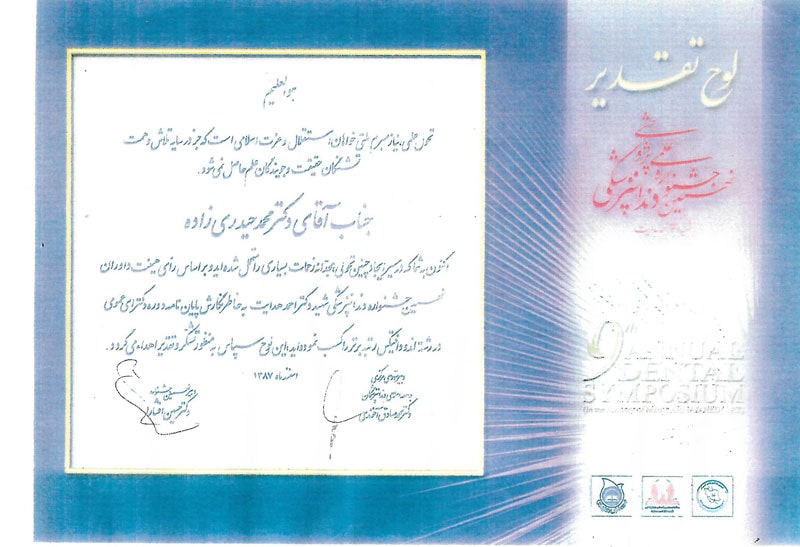 لوح تقدیر
نخستین جشنواره علمی پژوهشی
دندانپزشکی
هوالعلیم
تحول علمی، نیاز مبرم ملتی خواهان استقلال و عزت اسلامی است که جز در سایه تلاش و همت
تشنگان حقیقت و جویندگان علم حاصل نمی‌شود.
جناب آقای دکتر محمد حیدری زاده
اکنون به شما که در مسیر ایجاد چنین تحولی، مجدانه زحمات بسیاری را متحمل شده‌اید و بر اساس رای هیئت داوران
نخستین جشنواره دندانپزشکی شهید دکتر احمد هدایت به خاطر نگارش پایان نامه دوره دکترای عمومی
در رشته اندودانتیکس رتبه برتر را کسب نموده‌اید، این لوح سپاس به منظور تشکر و تقدیر اهداء می‌گردد.
اسفند ماه ۱۳۸۷
دبیر شورای مرکزی
جامعه اسلامی دندانپزشکان
دکتر محمد صادق
دبیر نخستین جشنواره
دکتر حسین افشار
9th ANNUAL
DENTAL
SYMPOSIUM